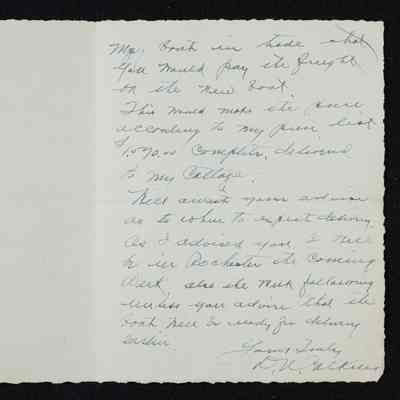 my boat in trade and
you would pay the freight
on the new boat.
This would make the price
according to my price list
complete, delivered
to my Cottage.
Will await your advise
as to when to expect delivery.
As I advised you, I will
be in Rochester the coming
week, also the week following
unless you advise that the
boat will be ready for delivery
earlier.
Yours Truly